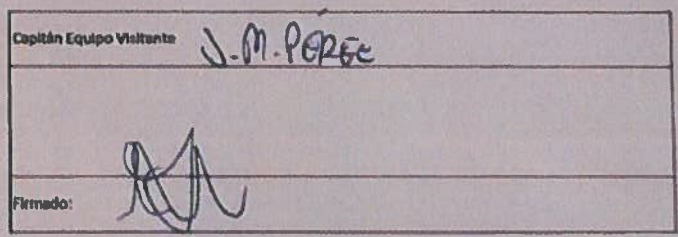 Capitán Equipo Visitante J.M. PEREZ
Firmado: